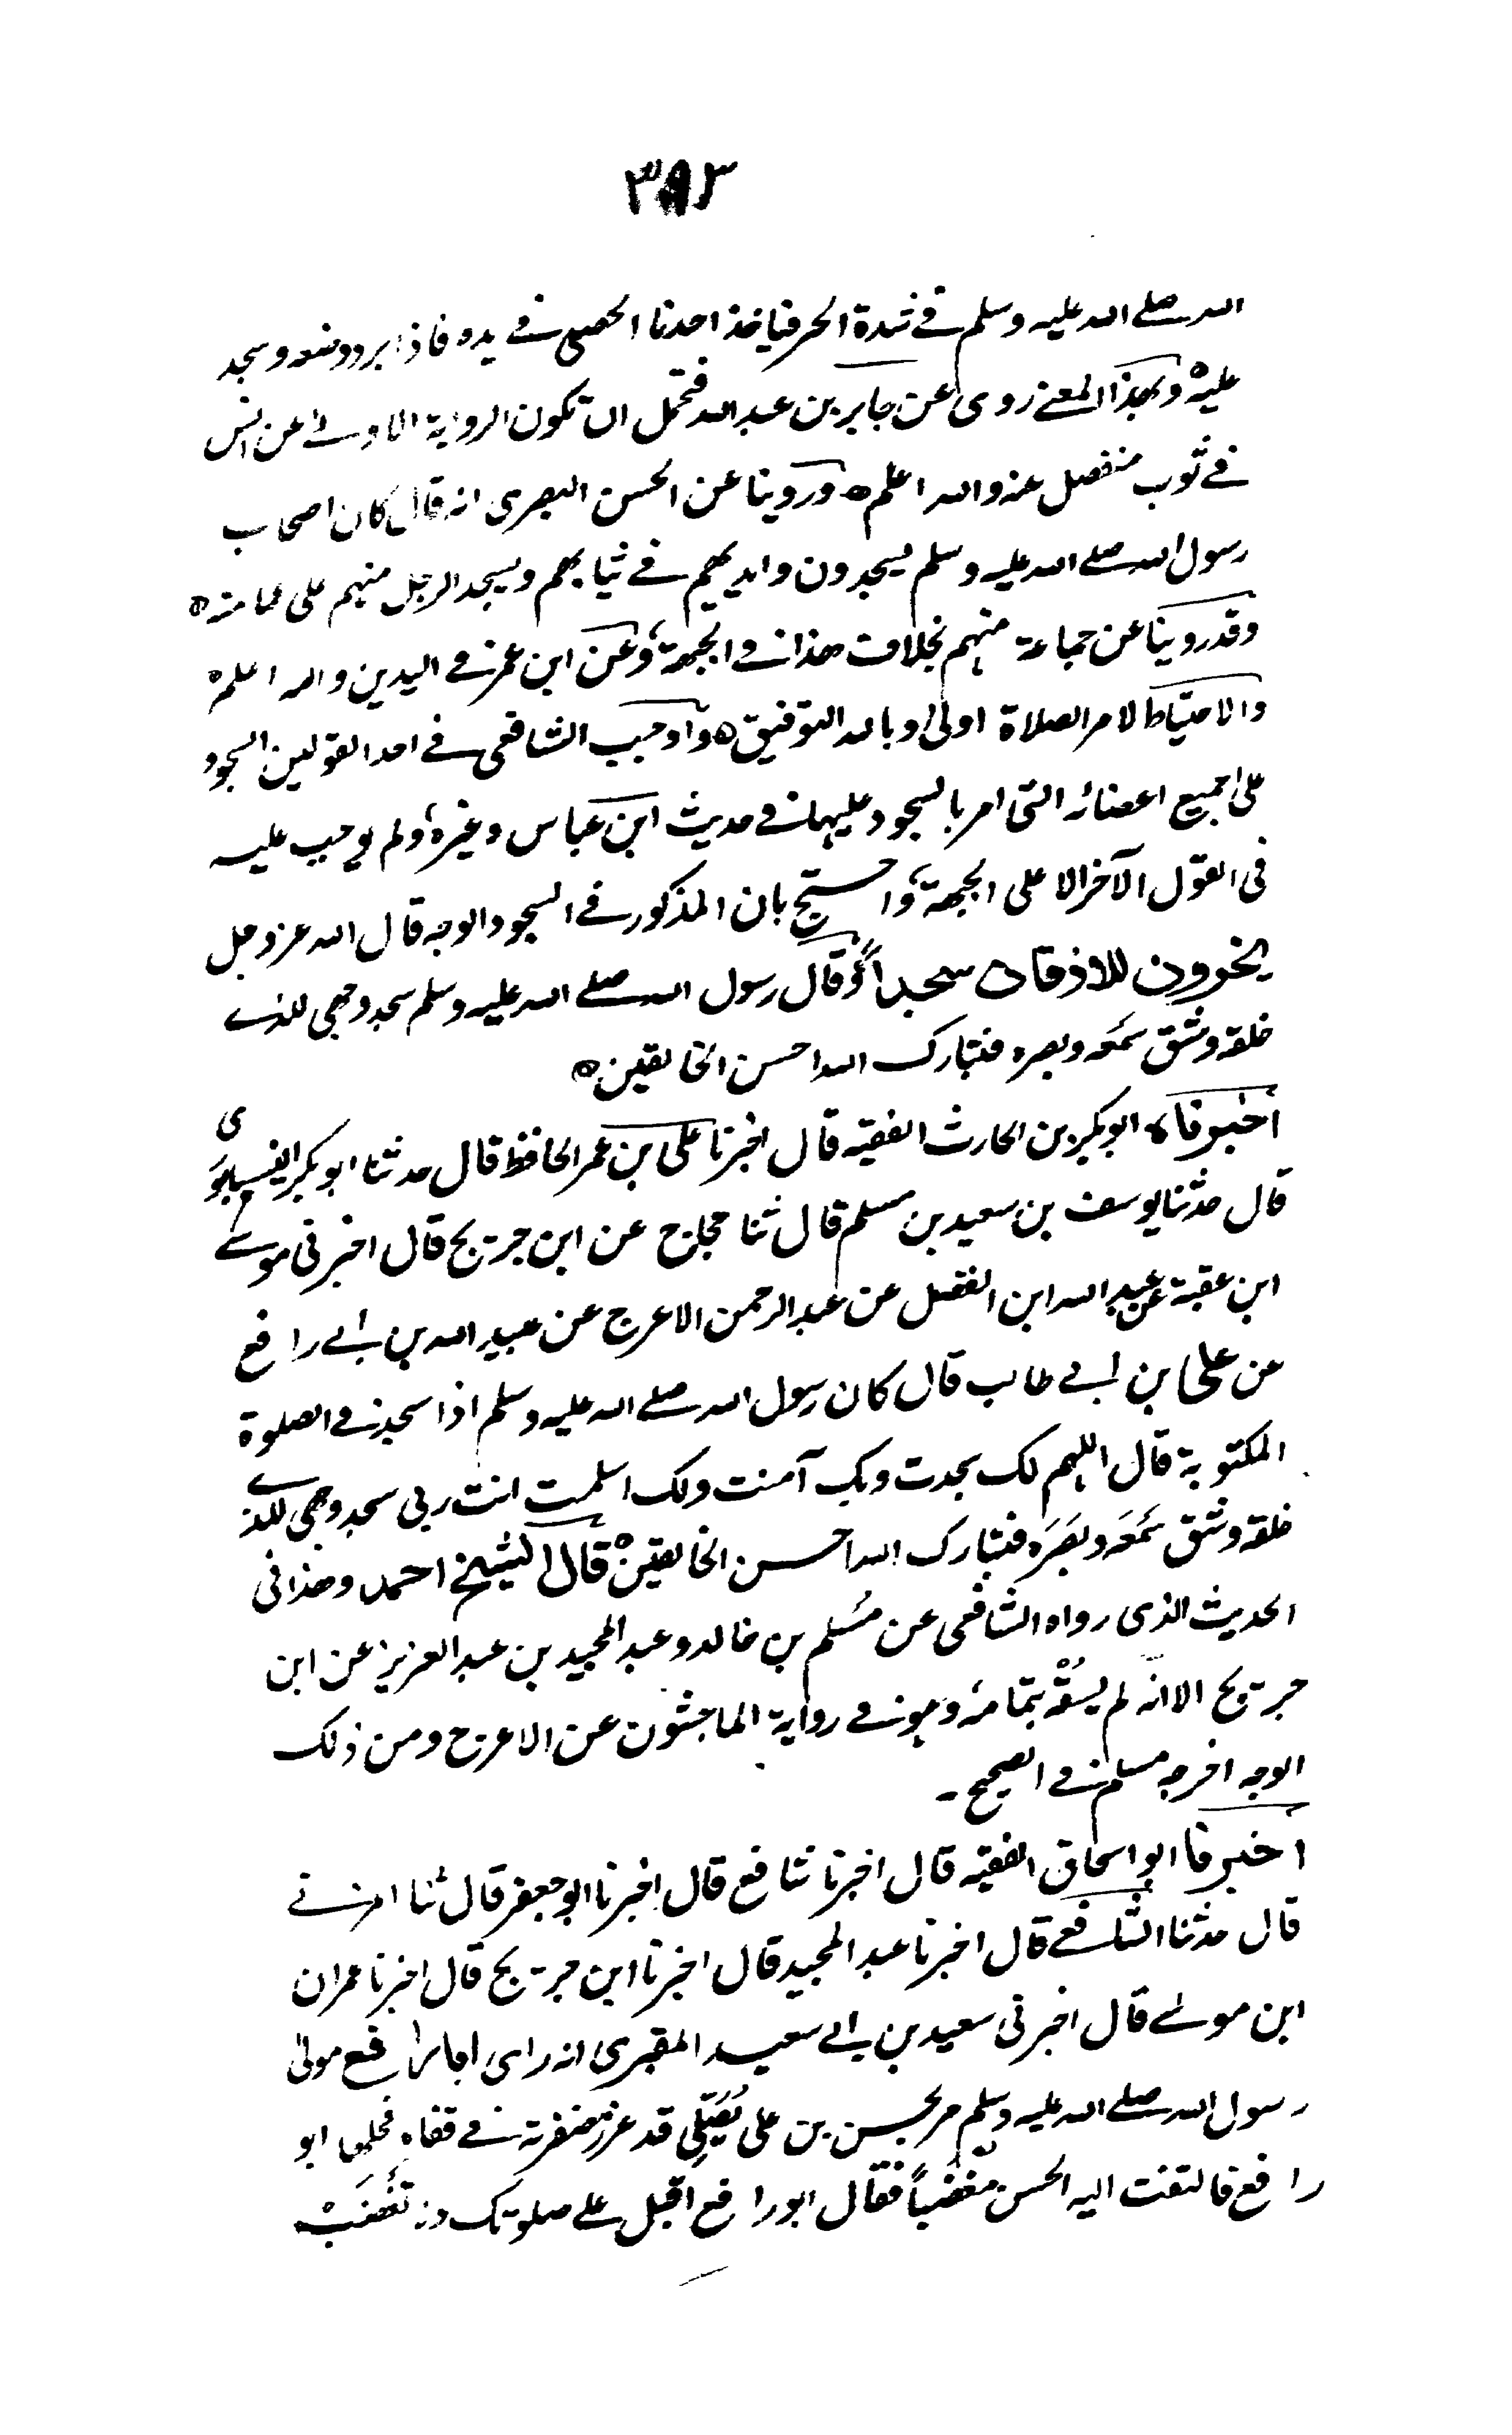 ٣٨٣
الله صلے الله عليه وسلم في شدة الحر فياخذ احدنا الحصى في يده فاذا برد وضعه وسجد
عليه وبهذا المعنى روى عن جابر بن عبد الله فتحمل ان تكون الرواية الاولى عن انس
في ثوب منفصل عنه والله اعلم ٥ ورو‌ينا عن الحسن البصرى انه قال كان اصحاب
رسول الله صلے الله عليه وسلم يسجدون وايديهم في ثيابهم ويسجد الرجل منهم على عمامته ٥
وقد روينا عن جماعة منهم بخلاف هذا في الجبهة، وعن ابن عمر في اليدين والله اعلم
والاحتياط لامر الصلاة اولى وبالله التوفيق ٥ واوجب الشافعى في احد القولين السجود
على جميع اعضائه التى امر بالسجود عليها في حديث ابن عباس وغيره، ولم يوجب عليه
فى القول الآخر الا على الجبهة، واحتج بان المذكور في السجود الوجه قال الله عز وجل
يخرون للاذقان سجداً وقال رسول الله صلے الله عليه وسلم سجد وجهى للذے
خلقه وشق سَمعه وبصره فتبارك الله احسن الخالقين ٥
اخبرنا ابو بكر بن الحارث الفقيه قال اخبرنا على بن عمر الحافظ قال حدثنا ابو بكر النيسابورى
قال حدثنا يوسف بن سعيد بن مسلم قال ثنا حجاج عن ابن جريج قال اخبرنى موسے
ابن عقبة عن عبد الله ابن الفضل عن عبد الرحمن الاعرج عن عبيد الله بن ابے رافع
عن على بن ابے طالب قال كان رسول الله صلے الله عليه وسلم اذا سجد في الصلوة
المكتوبة قال اللهم لك سجدت وبك آمنت ولك اسلمت انت ربى سجد وجهى للذے
خلقه وشق سَمعَه وبَصَرَه فتبارك الله احسن الخالقين ٥ قال الشيخ احمد وهذا فى
الحديث الذى رواه الشافعى عن مُسلم بن خالد وعبد المجيد بن عبد العزيز عن ابن
جريج الا انّه لم يسُقْه بتمامه وهو في رواية الماجشون عن الاعرج ومن ذلك
الوجه اخرجه مسلم في الصحيح -
اخبرنا ابو اسحاق الفقيه قال اخبرنا شافع قال اخبرنا ابو جعفر قال ثنا المزنے
قال حدثنا الشافعے قال اخبرنا عبد المجيد قال اخبرنا ابن جريج قال اخبرنا عمران
ابن موسے قال اخبرنى سعيد بن ابے سعيد المقبرى انه راى ابا رافع مولى
رسول الله صلے الله عليه وسلم مر بحسن بن على يُصَلّى قد غرز ضفرته في قفاه فحلها ابو
رافع فالتفت اليه الحسن مغضباً فقال ابو رافع اقبل علے صلوتك ولا تَغْضَبْ